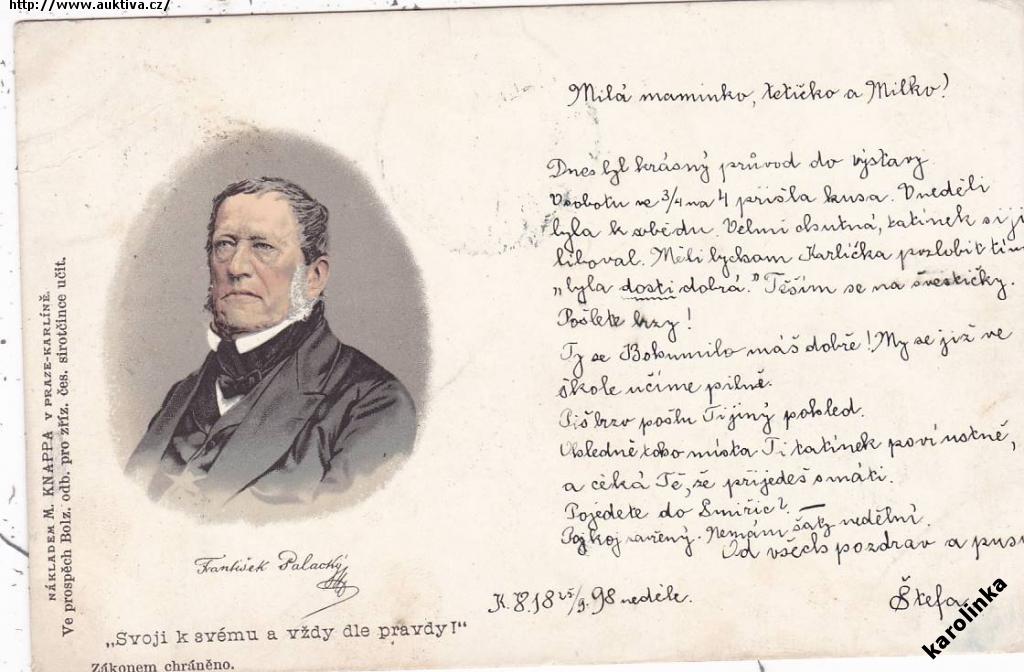 http://www.auktiva.cz/
Milá maminko, tetičko a Milko!
Dnes byl krásný průvod do výstavy
V sobotu ve 3/4 na 4 přišla husa. V neděli
byla k obědu. Velmi chutná, tatínek si ji
liboval. Měli bychom Karlíčka pozlobit tím
„byla dosti dobrá." Těším se na švestičky.
Pošlete brzy!
Ty se Bohumilo máš dobře! My se již ve
škole učíme pilně.
Piš brzo pošlu Ti jiný pohled.
Ohledně toho místa Ti tatínek poví ustně,
a čeká Tě, že přijedeš s máti.
Pojedete do Smiřic?
nedělní.
Od všech pozdrav a pus
Štefa.
K. 8. 18 25/9. 98 neděle.
František Palacký
„Svoji k svému a vždy dle pravdy!"
Zákonem chráněno.
NÁKLADEM M. KNAPPA V PRAZE-KARLÍNĚ.
Ve prospěch Bolz. odb. pro zříz. čes. sirotčince učit.
karolinka